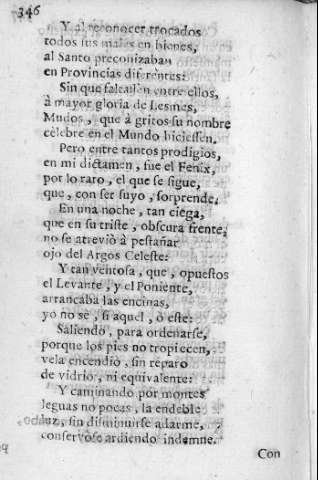 346
Y al reconocer trocados
todos sus males en bienes,
al Santo preconizaban
en Provincias diferentes:
Sin que faltassen entre ellos,
à mayor gloria de Lesmes,
Mudos, que à gritos su nombre
celebre en el Mundo hiciessen.
Pero entre tantos prodigios,
en mi dictamen, fue el Fenix,
por lo raro, el que se sigue,
que, con ser suyo, sorprende.
En una noche, tan ciega,
que en su triste, obscura frente,
no se atreviò à pestañar
ojo del Argos Celeste:
Y tan ventosa, que, opuestos
el Levante, y el Poniente,
arrancaba las encinas,
yo no sè, si aquel, ò este:
Saliendo, para ordenarse,
porque los pies no tropiecen,
vela encendiò, sin reparo
de vidrio, ni equivalente:
Y caminando por montes
leguas no pocas, la endeble
luz, sin disminuirse adarme,
conservòse ardiendo indemne.
Con